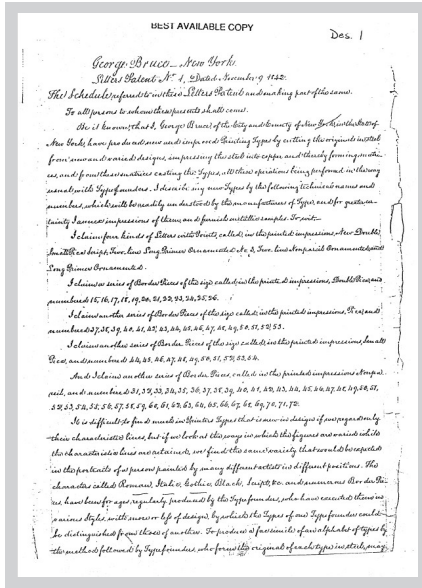 BEST AVAILABLE COPY
Des. 1
George Bruce – New York.
Letters Patent No. 1, Dated November 9 1842.
The Schedule referred to in these Letters Patent and making part of the same.
To all persons to whom these presents shall come.
Be it known, that I, George Bruce, of the City and County of New York in the State of
New York, have produced new and improved Printing Types by cutting the originals in steel
from new and varied designs, impressing the steel into copper, and thereby forming matri-
ces, and from these matrices casting the Types, all these operations being performed in the way
usual with Type founders. I describe my new Types by the following technical names and
numbers, which will be readily understood by the manufacturers of Type, and for greater cer-
tainty I annex impressions of them, and furnish metallic samples. To wit.
I claim four kinds of Letters with Points, called, in the printed impressions, New Double
Small Pica Script, Two line Long Primer Ornamented No 2, Two line Nonpareil Ornamented, and
Long Primer Ornamented.
I claim a series of Border Pieces of the size called, in the printed impressions, Double Pica, and
numbered 15, 16, 17, 18, 19, 20, 21, 22, 23, 24, 25, 26.
I claim another series of Border Pieces of the size called, in the printed impressions, Pica, and
numbered 37, 38, 39, 40, 41, 42, 43, 44, 45, 46, 47, 48, 49, 50, 51, 52, 53.
I claim another series of Border Pieces of the size called, in the printed impressions, Small
Pica, and numbered 44, 45, 46, 47, 48, 49, 50, 51, 52, 53, 54.
And I claim another series of Border Pieces, called, in the printed impressions Nonpa-
reil, and numbered 31, 32, 33, 34, 35, 36, 37, 38, 39, 40, 41, 42, 43, 44, 45, 46, 47, 48, 49, 50, 51,
52, 53, 54, 55, 56, 57, 58, 59, 60, 61, 62, 63, 64, 65, 66, 67, 68, 69, 70, 71, 72.
It is difficult to find merit in Printers Types that is new in design if we regard only
their characteristic lines, but if we look at the ways in which the figures are varied while
the characteristic lines are retained, we find the same variety that would be expected
in the portraits of a person painted by many different artists in different positions. The
characters called Roman, Italic, Gothic, Black, Script, &c. and numerous Border Pie-
ces, have been for ages, regularly produced by the Type founders, who have executed them in
various Styles, with more or less of design, by which the Types of one Type founder could
be distinguished from those of another. To produce a facsimile of an alphabet of types by
the method followed by Type founders, who form the original of each type in steel, may